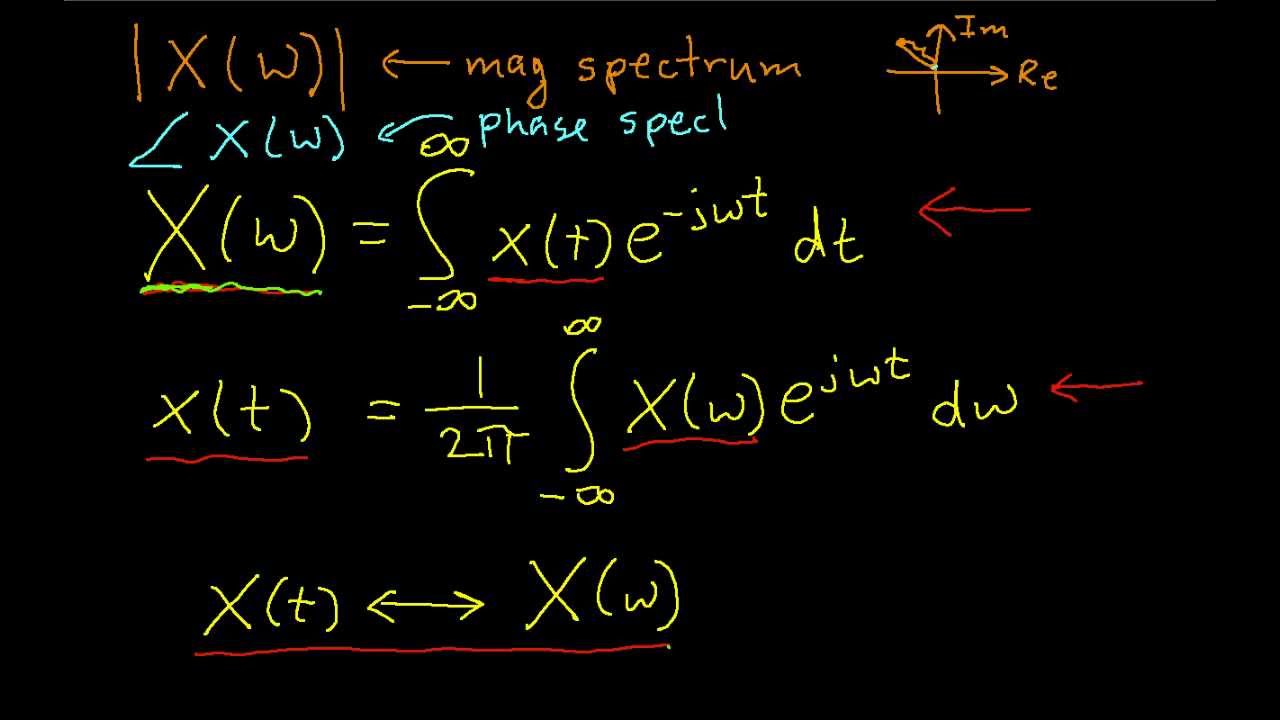 |X(w)| ← mag spectrum
Im
Re
∠X(w) ← phase spec
X(w) = ∫_{-∞}^{∞} x(t) e^{-jwt} dt ←
x(t) = 1/2π ∫_{-∞}^{∞} X(w) e^{jwt} dw ←
X(t) ↔ X(w)